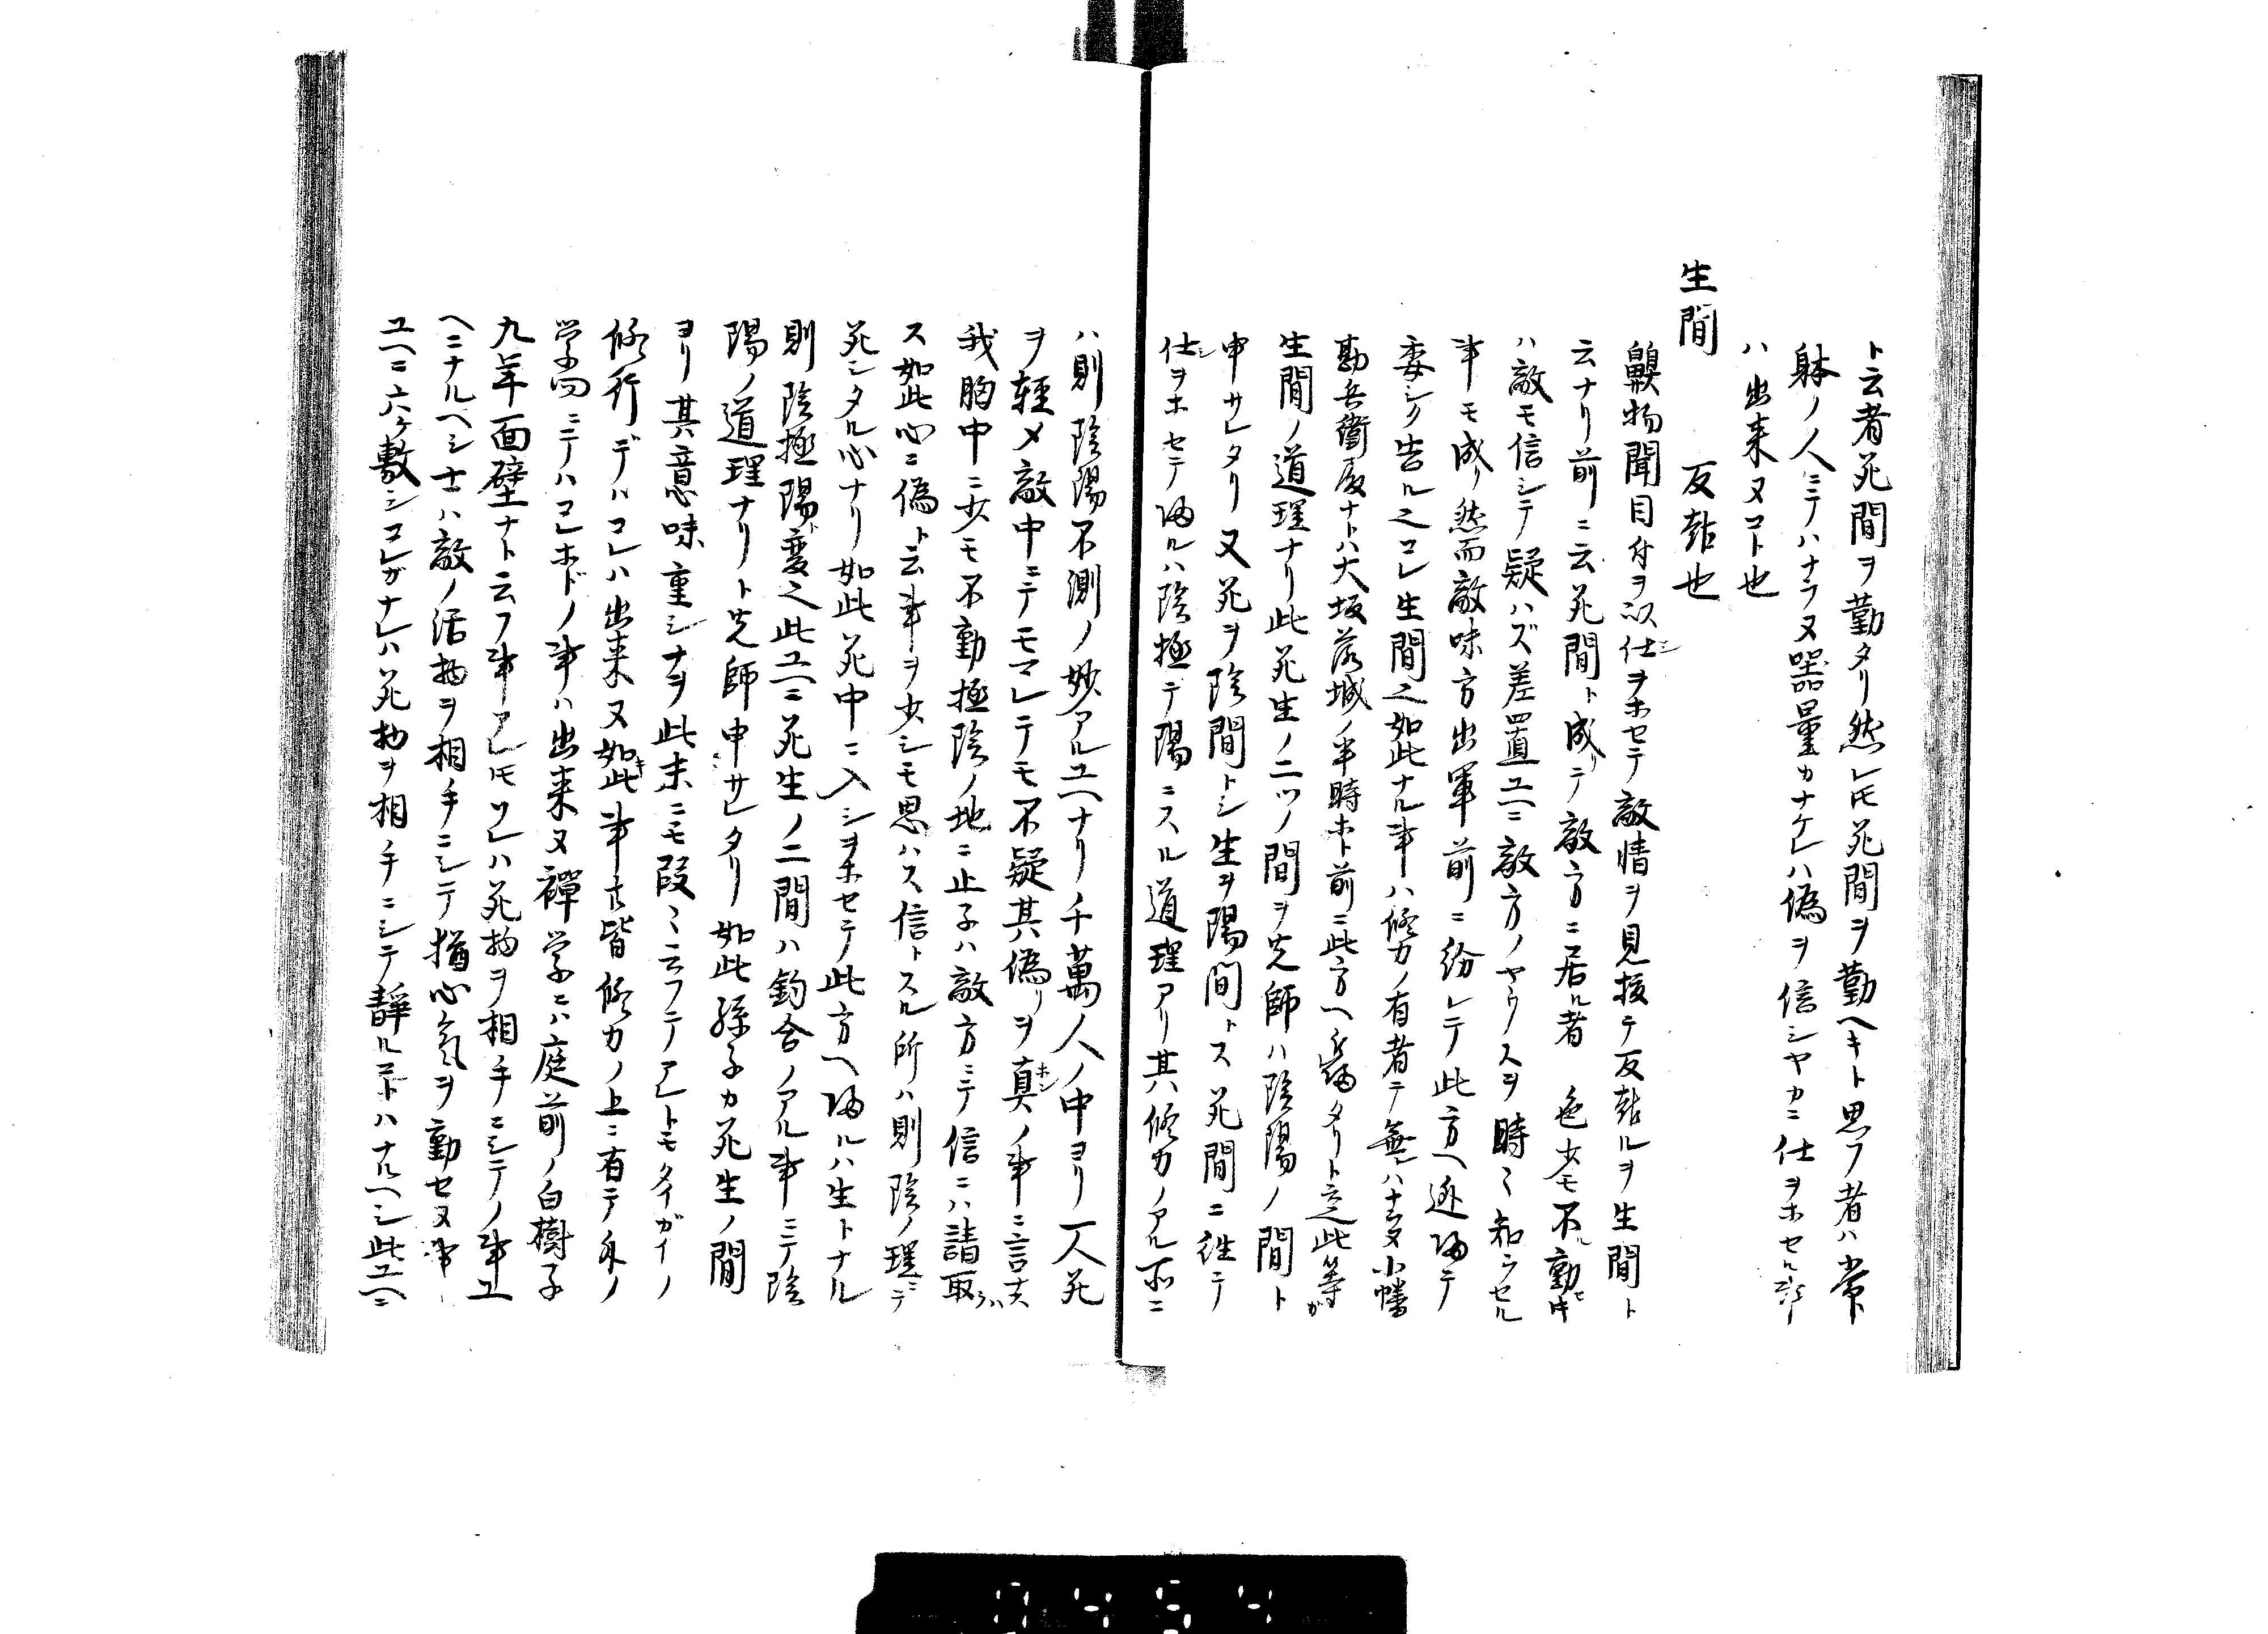 ト云者死間ヲ勤タリ然レ𪜈死間ヲ勤ヘキト思フ者ハ常
躰ノ人ニテハナラヌ器量カナケレハ偽ヲ信シヤカニ仕ヲホセル事
ハ出来ヌコト也
生間　反報也
鼻物聞目付ヲ以仕ヲホセテ敵情ヲ見接テ反報ルヲ生間ト
云ナリ前ニ云死間ト成リテ敵方ニ居ル者色少モ不動セ
ハ敵モ信シテ疑ハズ差置ユヘニ敵方ノヤウスヲ時〻知ラセル
事モ成リ然而敵味方出軍前ニ紛レテ此方ヘ逃帰テ
委シク告ル之コレ生間之如此ナル事ハ修力ノ有者テ無ハナラヌ小幡
勘兵衛殿ナトハ大坂落城ノ半時ホト前ニ此方ヘ帰タリト云此等ガ
生間ノ道理ナリ此死生ノ二ツノ間ヲ先師ハ陰陽ノ間ト
申サレタリ又死ヲ陰間トシ生ヲ陽間トス死間ニ往テ
仕ヲホセテ帰ルハ陰極テ陽ニスル道理アリ其修力ノアル所ニ
ハ則陰陽不測ノ妙アルユヘナリ千萬人ノ中ヨリ一人死
ヲ軽メ敵中ニテモマレテモ不疑其偽リヲ真ホンノ事ニ言
我胸中ニ少モ不動極陰ノ地ニ止子ハ敵方ニテ信ニハ請取ラ
ス如此心ニ偽ト云事ヲ少シモ思ハス信トスル所ハ則陰ノ理ニテ
死シタル心ナリ如此死中ニ入シヲホセテ此方ヘ帰ルハ生トナル
則陰極陽ト変之此ユヘニ死生ノ二間ハ釣合ノアル事ニテ陰
陽ノ道理ナリト先師申サレタリ如此孫子カ死生ノ間
ヨリ其意味重シナヲ此末ニモ段〻云フテアレトモタイガイノ
修行デハコレハ出来ヌ如此キ事ハ皆修力ノ上ニ有テ糸ノ
学問ニテハコレホドノ事ハ出来ヌ禅学ニハ庭前ノ白樹子
九年面壁ナト云フ事アレ𪜈ソレハ死物ヲ相手ニシテノ事ユ
ヘニナルヘシ士ハ敵ノ活物ヲ相手ニシテ猶心氣ヲ動セヌ事
ユヘニ六ヶ敷シコレガナレハ死物ヲ相手ニシテ静ルコトハナルヘシ此ユヘニ